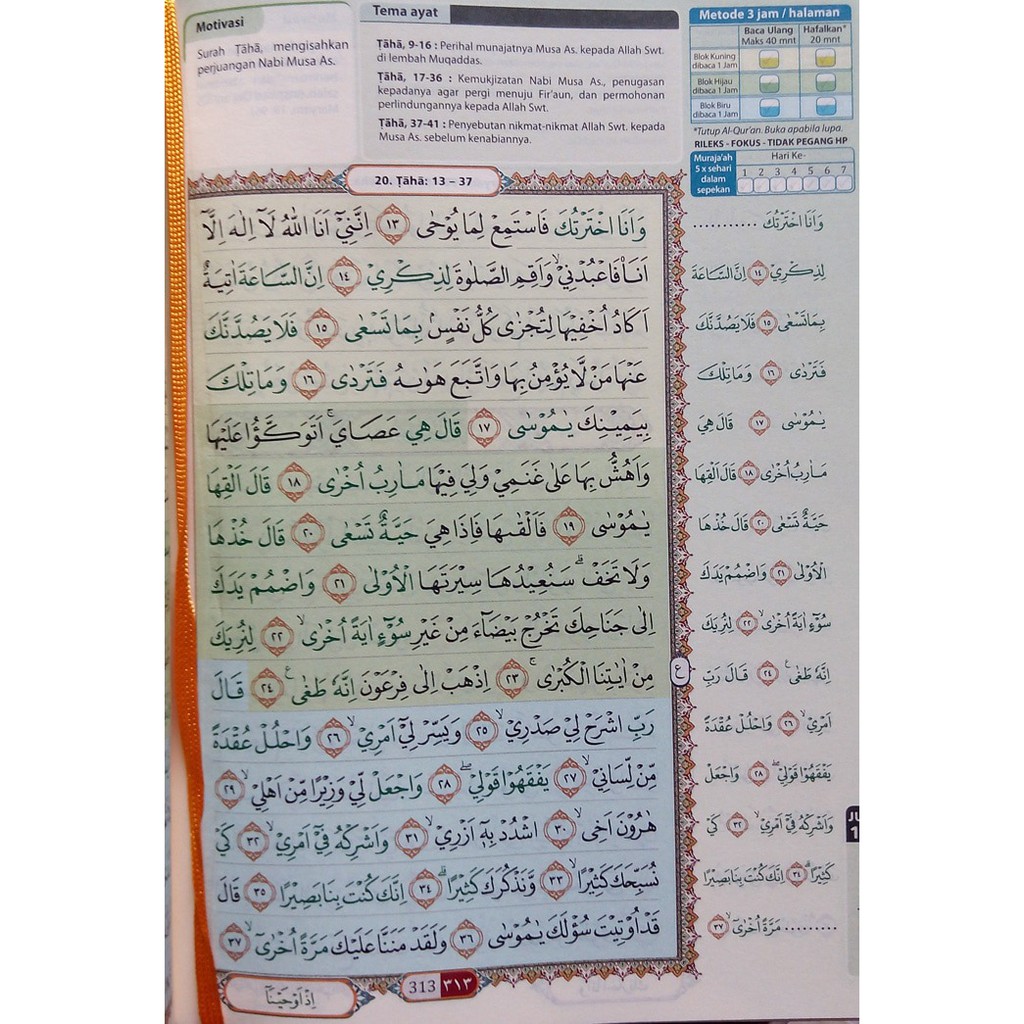 Motivasi
Surah Ṭāhā, mengisahkan
perjuangan Nabi Musa As.
Tema ayat
Ṭāhā, 9-16 : Perihal munajatnya Musa As. kepada Allah Swt.
di lembah Muqaddas.
Ṭāhā, 17-36 : Kemukjizatan Nabi Musa As., penugasan
kepadanya agar pergi menuju Fir'aun, dan permohonan
perlindungannya kepada Allah Swt.
Ṭāhā, 37-41 : Penyebutan nikmat-nikmat Allah Swt. kepada
Musa As. sebelum kenabiannya.
Metode 3 jam / halaman
Baca Ulang Hafalkan*
Maks 40 mnt 20 mnt
Blok Kuning
dibaca 1 Jam
Blok Hijau
dibaca 1 Jam
Blok Biru
dibaca 1 Jam
*Tutup Al-Qur'an. Buka apabila lupa.
RILEKS - FOKUS - TIDAK PEGANG HP
Muraja'ah
5 x sehari
dalam
sepekan
Hari Ke-
1 2 3 4 5 6 7
20. Ṭāhā: 13 – 37
وَاَنَا اخْتَرْتُكَ فَاسْتَمِعْ لِمَا يُوْحٰى ١٣ اِنَّنِيْٓ اَنَا اللّٰهُ لَآ اِلٰهَ اِلَّآ
اَنَا۠ فَاعْبُدْنِيْۙ وَاَقِمِ الصَّلٰوةَ لِذِكْرِيْ ١٤ اِنَّ السَّاعَةَ اٰتِيَةٌ
اَكَادُ اُخْفِيْهَا لِتُجْزٰى كُلُّ نَفْسٍۢ بِمَا تَسْعٰى ١٥ فَلَا يَصُدَّنَّكَ
عَنْهَا مَنْ لَّا يُؤْمِنُ بِهَا وَاتَّبَعَ هَوٰىهُ فَتَرْدٰى ١٦ وَمَا تِلْكَ
بِيَمِيْنِكَ يٰمُوْسٰى ١٧ قَالَ هِيَ عَصَايَۚ اَتَوَكَّؤُا عَلَيْهَا
وَاَهُشُّ بِهَا عَلٰى غَنَمِيْ وَلِيَ فِيْهَا مَاٰرِبُ اُخْرٰى ١٨ قَالَ اَلْقِهَا
يٰمُوْسٰى ١٩ فَاَلْقٰىهَا فَاِذَا هِيَ حَيَّةٌ تَسْعٰى ٢٠ قَالَ خُذْهَا
وَلَا تَخَفْۗ سَنُعِيْدُهَا سِيْرَتَهَا الْاُوْلٰى ٢١ وَاضْمُمْ يَدَكَ
اِلٰى جَنَاحِكَ تَخْرُجْ بَيْضَاۤءَ مِنْ غَيْرِ سُوْۤءٍ اٰيَةً اُخْرٰىۙ ٢٢ لِنُرِيَكَ
مِنْ اٰيٰتِنَا الْكُبْرٰىۚ ٢٣ اِذْهَبْ اِلٰى فِرْعَوْنَ اِنَّهٗ طَغٰى ࣖ ٢٤ قَالَ
رَبِّ اشْرَحْ لِيْ صَدْرِيْۙ ٢٥ وَيَسِّرْ لِيْٓ اَمْرِيْۙ ٢٦ وَاحْلُلْ عُقْدَةً
مِّنْ لِّسَانِيْۙ ٢٧ يَفْقَهُوْا قَوْلِيْۖ ٢٨ وَاجْعَلْ لِّيْ وَزِيْرًا مِّنْ اَهْلِيْۙ ٢٩
هٰرُوْنَ اَخِىۙ ٣٠ اشْدُدْ بِهٖٓ اَزْرِيْۙ ٣١ وَاَشْرِكْهُ فِيْٓ اَمْرِيْۙ ٣٢ كَيْ
نُسَبِّحَكَ كَثِيْرًاۙ ٣٣ وَّنَذْكُرَكَ كَثِيْرًاۗ ٣٤ اِنَّكَ كُنْتَ بِنَا بَصِيْرًا ٣٥ قَالَ
قَدْ اُوْتِيْتَ سُؤْلَكَ يٰمُوْسٰى ٣٦ وَلَقَدْ مَنَنَّا عَلَيْكَ مَرَّةً اُخْرٰىٓۙ ٣٧
وَاَنَا اخْتَرْتُكَ ...........
لِذِكْرِيْ ١٤ اِنَّ السَّاعَةَ
بِمَا تَسْعٰى ١٥ فَلَا يَصُدَّنَّكَ
فَتَرْدٰى ١٦ وَمَا تِلْكَ
يٰمُوْسٰى ١٧ قَالَ هِيَ
مَاٰرِبُ اُخْرٰى ١٨ قَالَ اَلْقِهَا
حَيَّةٌ تَسْعٰى ٢٠ قَالَ خُذْهَا
الْاُوْلٰى ٢١ وَاضْمُمْ يَدَكَ
سُوْۤءٍ اٰيَةً اُخْرٰىۙ ٢٢ لِنُرِيَكَ
اِنَّهٗ طَغٰى ࣖ ٢٤ قَالَ رَبِّ
اَمْرِيْۙ ٢٦ وَاحْلُلْ عُقْدَةً
يَفْقَهُوْا قَوْلِيْۖ ٢٨ وَاجْعَلْ
وَاَشْرِكْهُ فِيْٓ اَمْرِيْۙ ٣٢ كَيْ
كَثِيْرًاۗ ٣٤ اِنَّكَ كُنْتَ بِنَا بَصِيْرًا
......... مَرَّةً اُخْرٰىٓۙ ٣٧
ع
اِذْ اَوْحَيْنَآ
313 ٣١٣